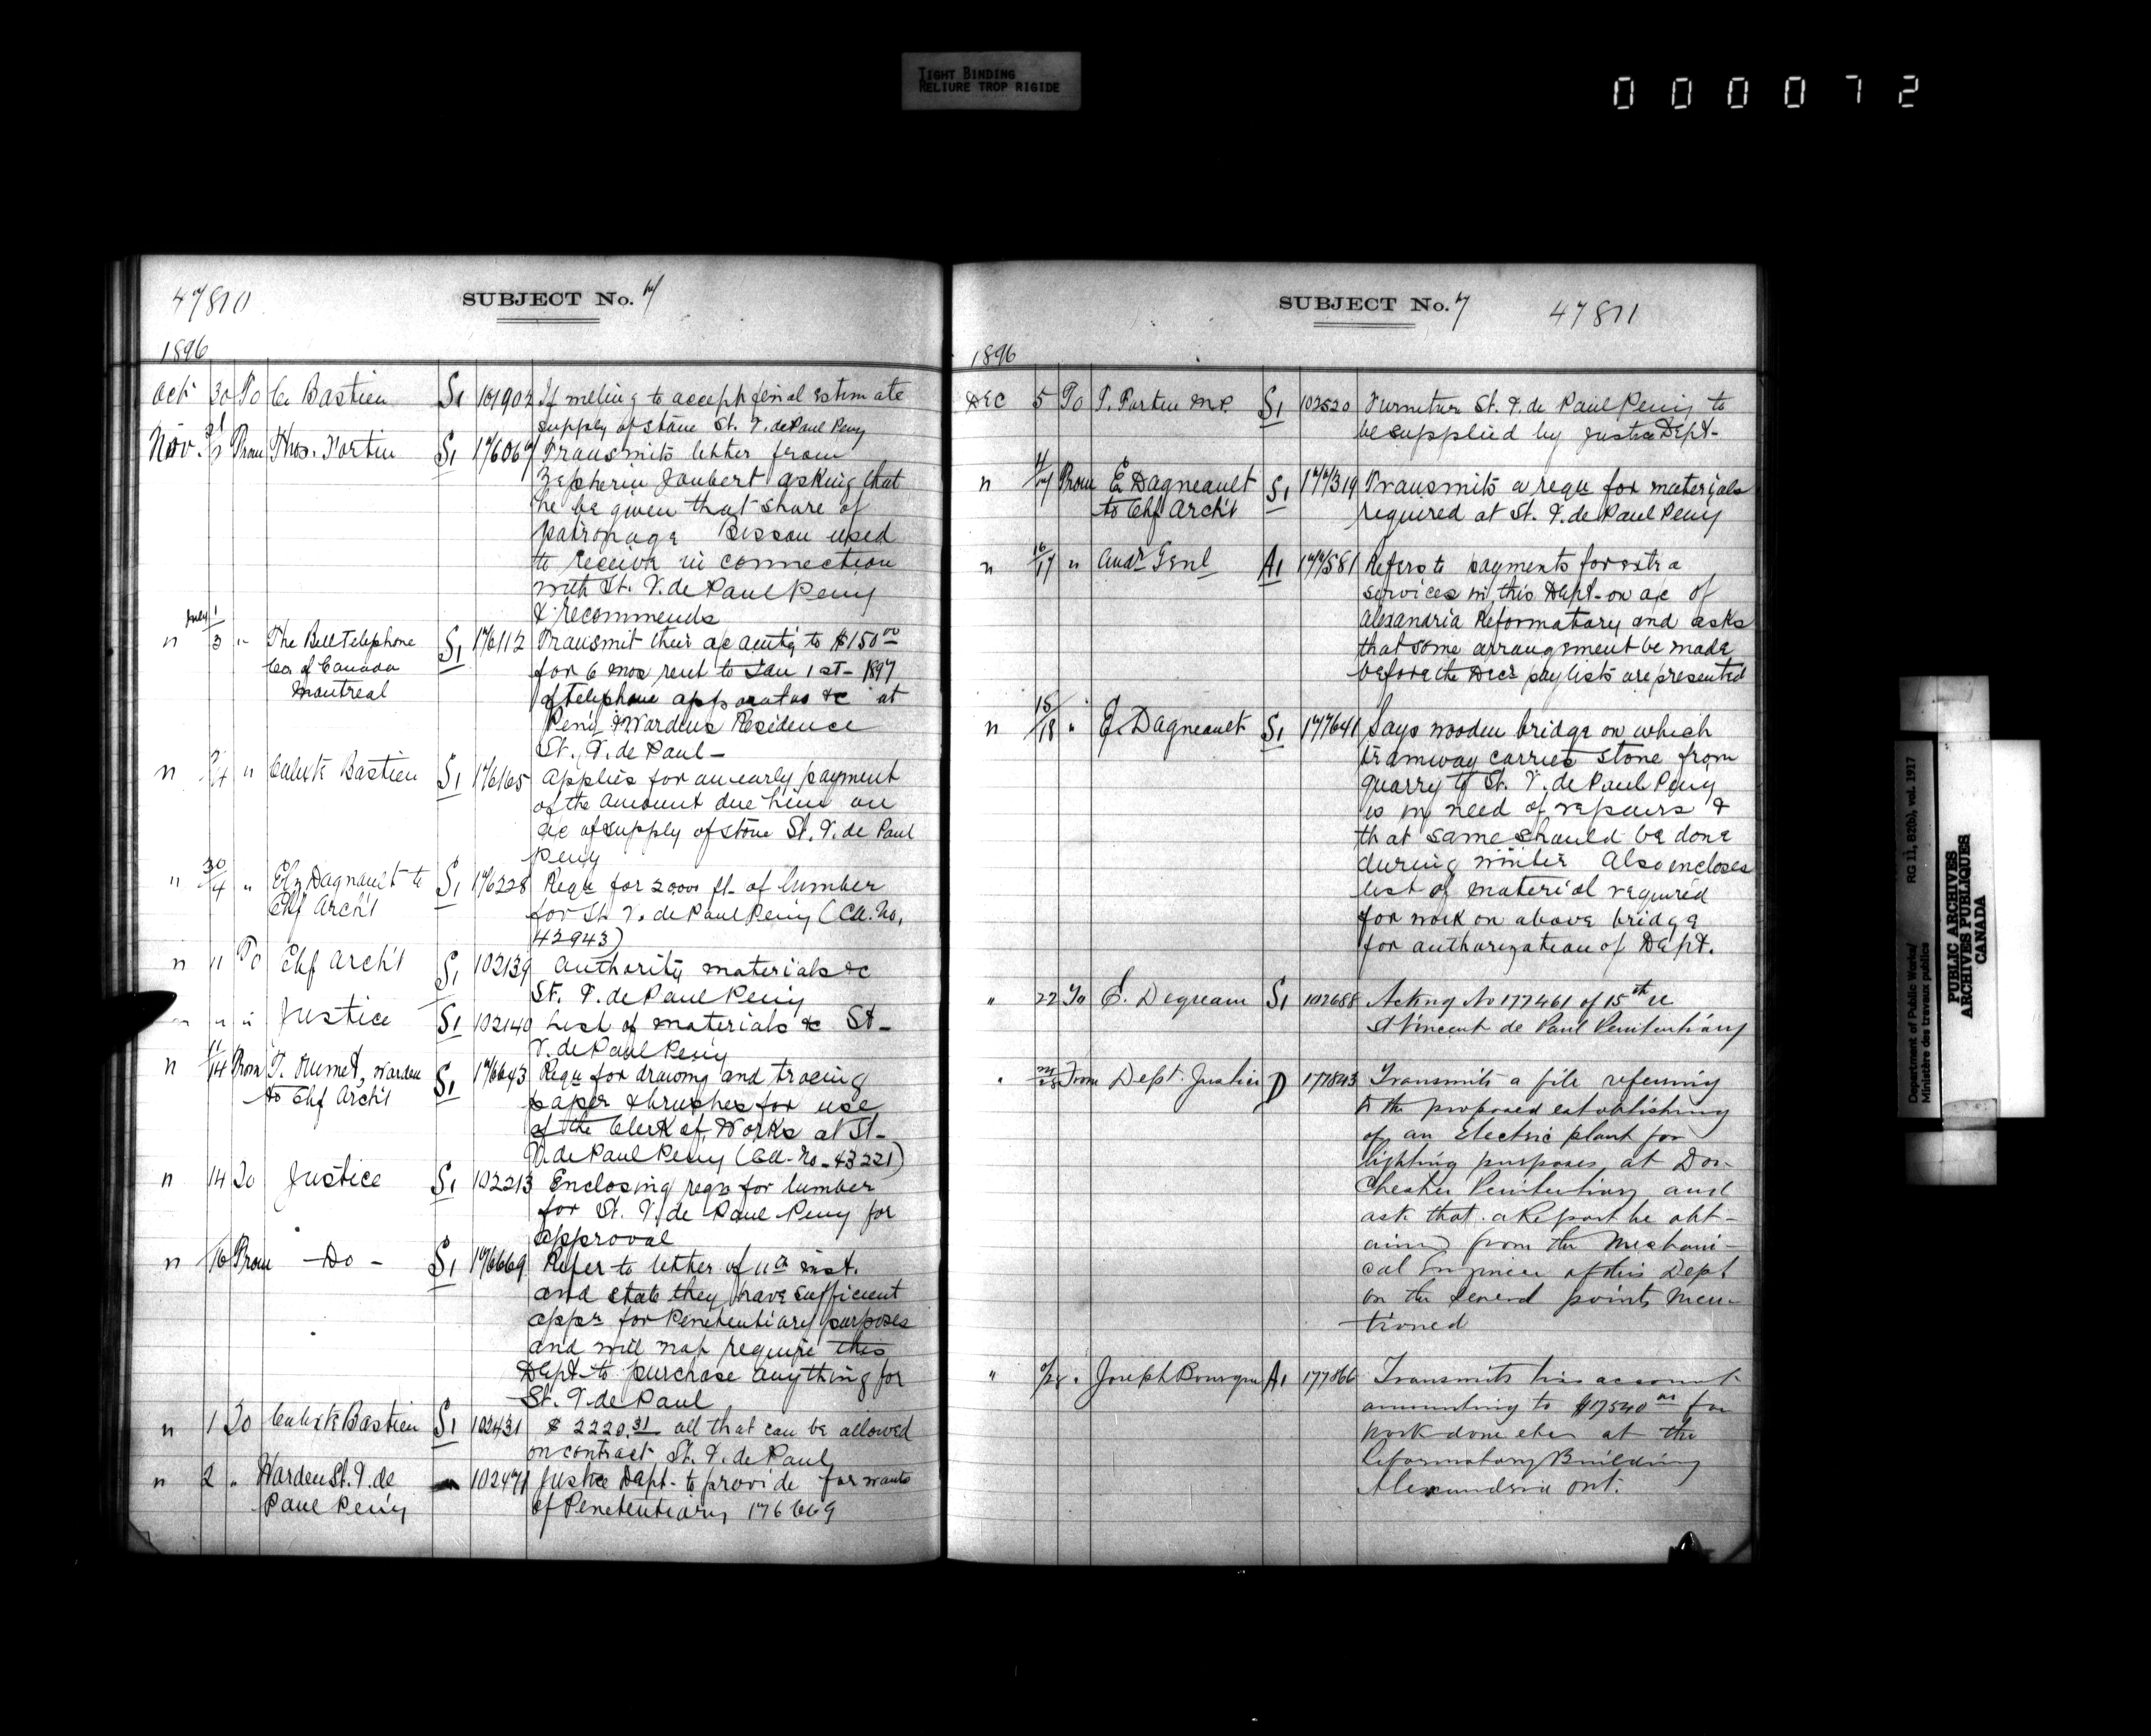 TIGHT BINDING
RELIURE TROP RIGIDE
000072
47810
SUBJECT No. 7
1896
Oct 30 To C. Bastien S1 101902 If willing to accept final estimate
supply of stone St. V. de Paul Peny
Nov. 31/2 From Thos. Fortin S1 176067 Transmits letter from
Zepherin Joubert asking that
he be given that share of
patronage Bissou used
to receive in connection
with St. V. de Paul Peny
& recommends
" July 1/3 " The Bell Telephone S1 176112 Transmit their a/c amtg to $150.00
Co. of Canada for 6 mos rent to Jan 1st - 1897
Montreal of telephone apparatus &c at
Peny & Wardens Residence
St. V. de Paul -
" 2/4 " Calixte Bastien S1 176165 Applies for an early payment
of the amount due him on
a/c of supply of stone St. V. de Paul
Peny
" 30/4 " Elz Dagnault to S1 176228 Requ for 2000 ft. of lumber
Chf Arch't for St. V. de Paul Peny (Ca. No.
42943)
" 11 To Chf Arch't S1 102139 Authority materials &c
St. V. de Paul Peny
" " " Justice S1 102140 List of materials &c St-
V. de Paul Peny
" 11/14 From T. Ouimet, Warden S1 176643 Requ for drawing and tracing
to Chf Arch't paper & brushes for use
of the Clerk of Works at St-
V. de Paul Peny (Ca. No. 43221)
" 14 To Justice S1 102213 Enclosing requ for lumber
for St. V. de Paul Peny for
approval
" 16 From - Do - S1 176669 Refer to letter of 11th inst.
and state they have sufficient
appr for Penitentiary purposes
and will not require this
Dept to purchase anything for
St. V. de Paul
" 1 To Calixte Bastien S1 102431 $2220.31 all that can be allowed
on contract St. V. de Paul
" 2 " Warden St. V. de 102471 Justice Dept. to provide for wants
Paul Peny of Penetentiary 176669
SUBJECT No. 7 47811
1896
Dec 5 To T. Fortin M.P. S1 102520 Furniture St. V. de Paul Peny to
be supplied by Justice Dept-
" 4/7 From E Dagneault S1 177319 Transmits a requ for materials
to Chf Arch't required at St. V. de Paul Peny
" 16/17 " Audr Genl A1 177581 Refers to payments for extra
services in this Dept. on a/c of
Alexandria Reformatory and asks
that some arrangement be made
before the Decr paylists are presented
" 15/18 " E. Dagneault S1 177641 Says wooden bridge on which
tramway carries stone from
quarry to St. V. de Paul Peny
is in need of repairs &
that same should be done
during winter Also encloses
list of material required
for work on above bridge
for authorization of Dept.
" 22 To E. S1 102688 Acting No 177461 of 15th
St Vincent de Paul Penitentiary
" From Dept. Justice D 177843 Transmits a file referring
to the proposed establishing
of an Electric plant for
lighting purposes, at Dor-
chester Penitentiary and
ask that a Report be obt-
ained from the Mechani-
cal Engineer of this Dept
on the several points men-
tioned
" Joseph Bourque A1 177866 Transmits his account
amounting to $17540.00 for
work done etc at the
Reformatory Building
Alexandria Ont.
Department of Public Works/ RG 11, B2(b), vol. 1917
Ministère des travaux publics
PUBLIC ARCHIVES
ARCHIVES PUBLIQUES
CANADA